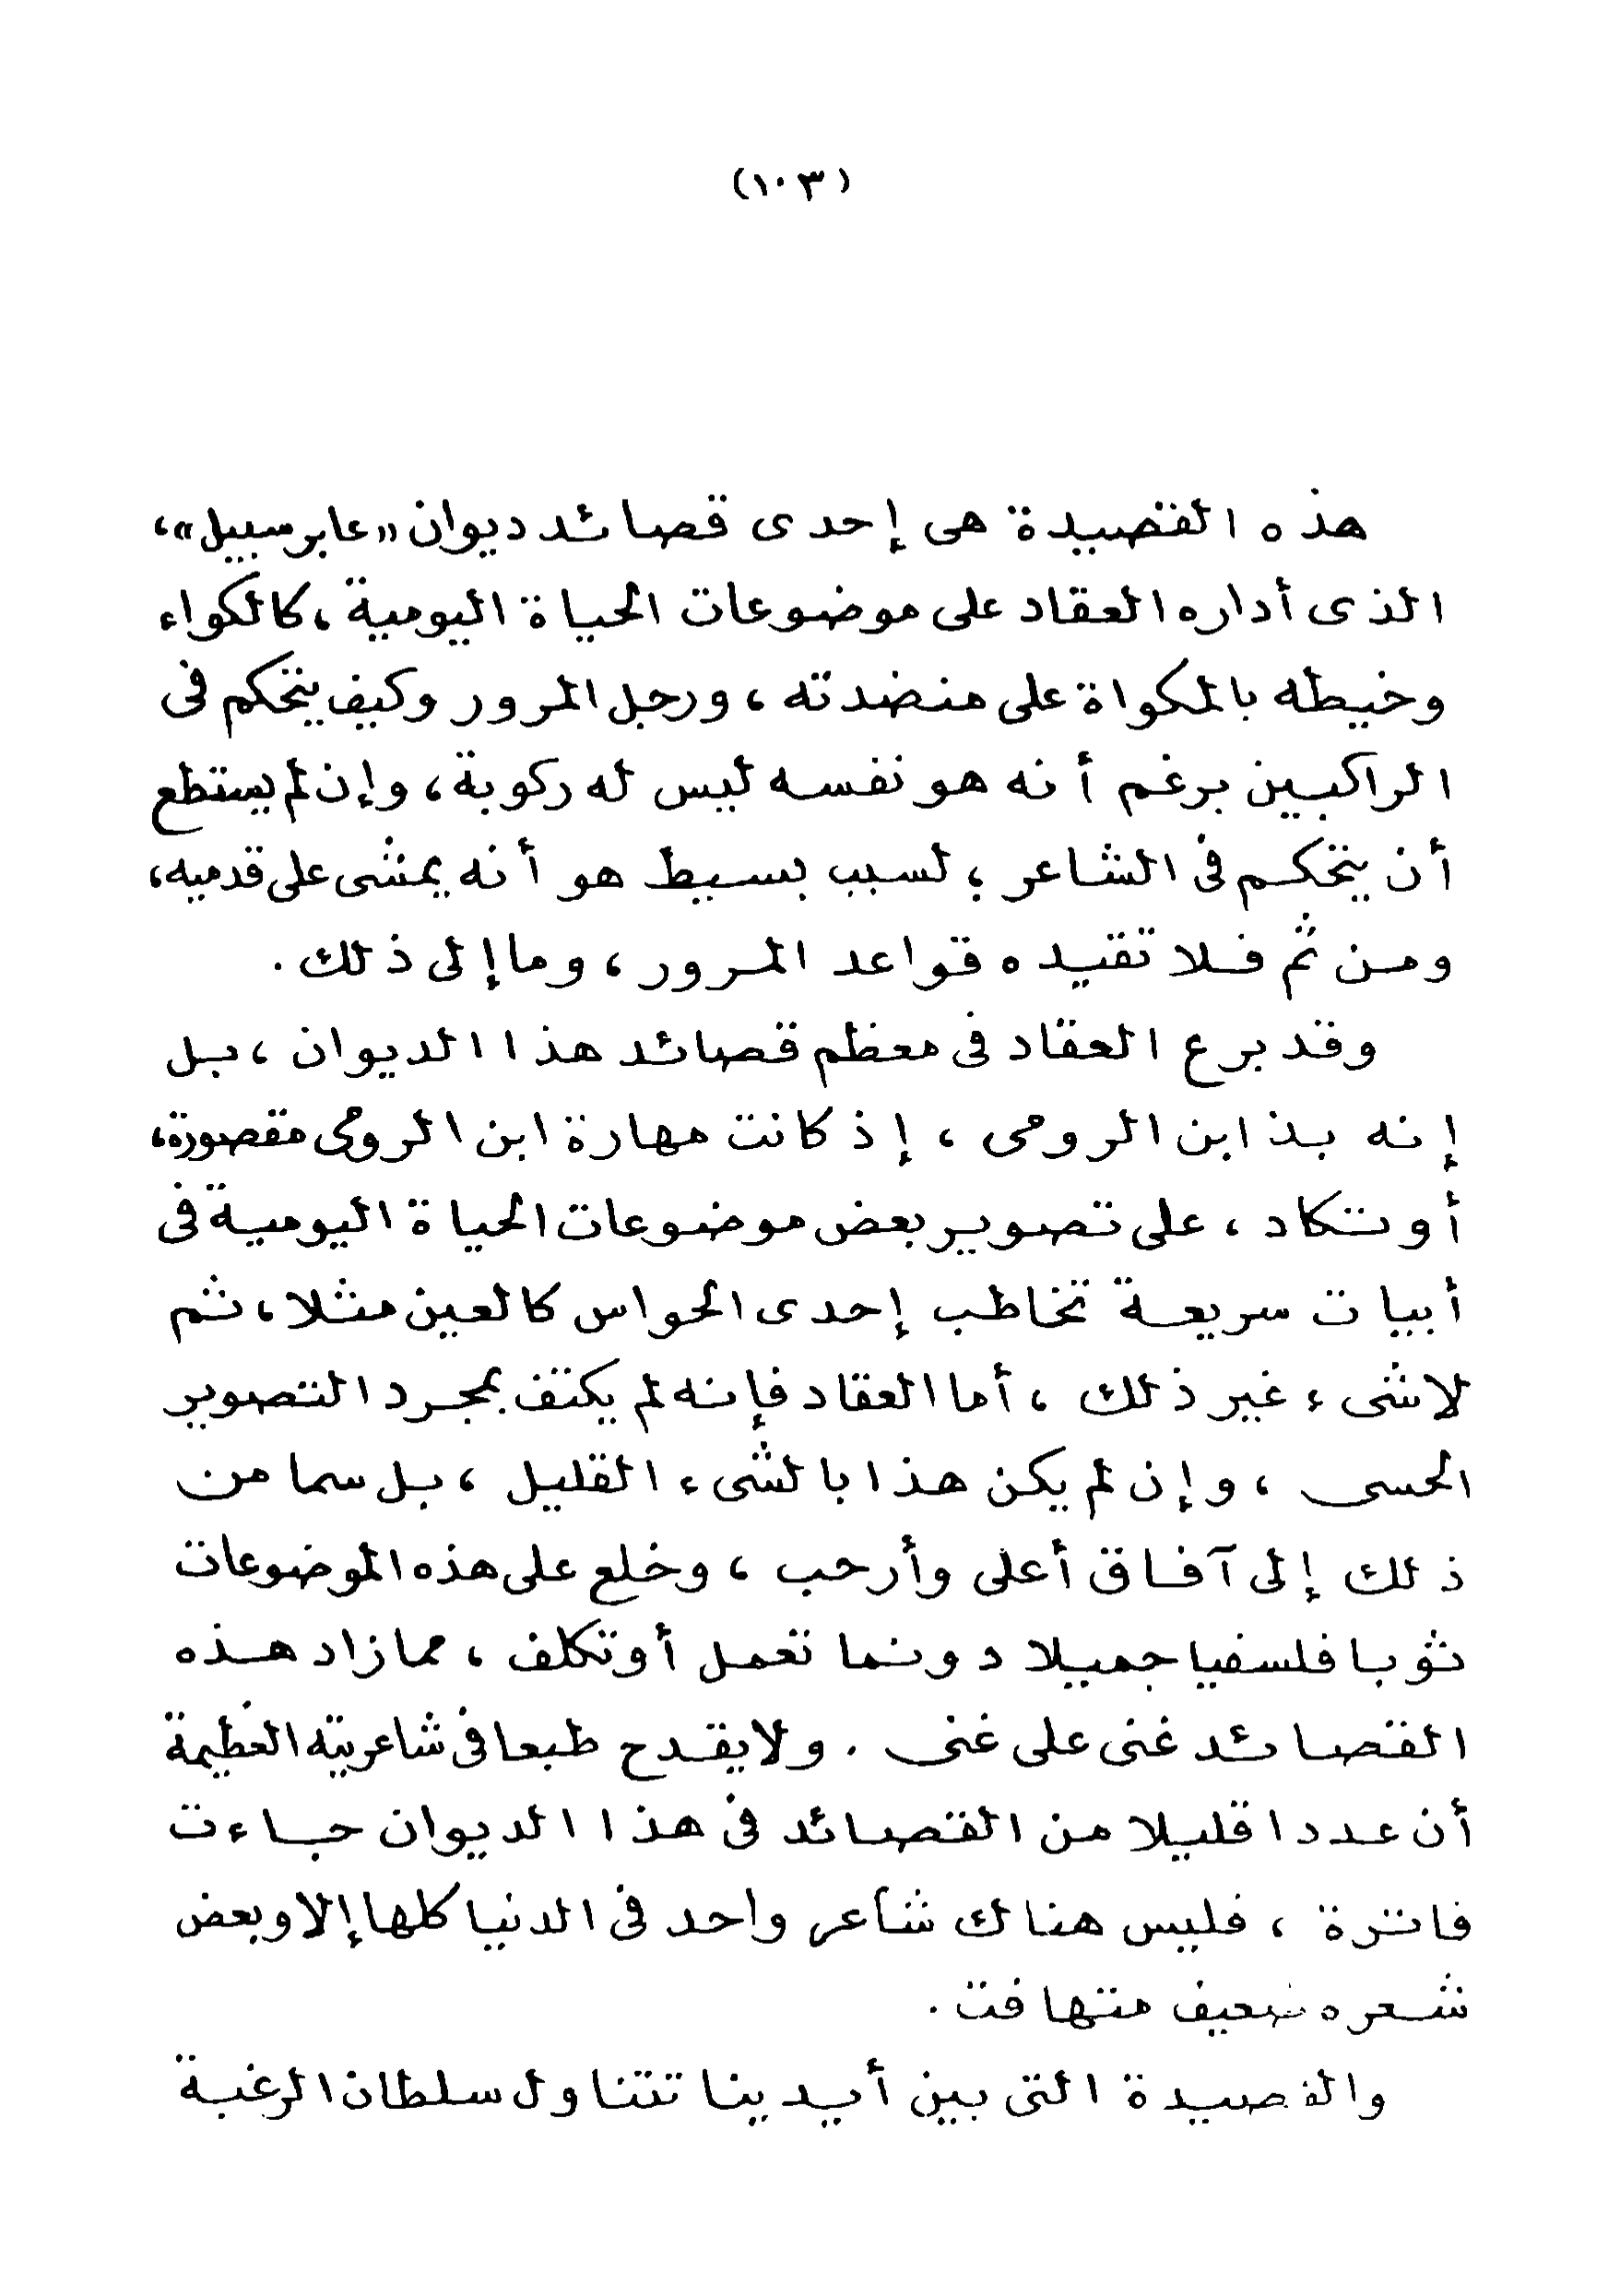 (١٠٣)
هذه القصيدة هى إحدى قصائد ديوان «عابر سبيل»،
الذى أداره العقاد على موضوعات الحياة اليومية ، كالكواء
وخيطه بالمكواة على منضدته ، ورجل المرور وكيف يتحكم فى
الراكبين برغم أنه هو نفسه ليس له ركوبة ، وإن لم يستطع
أن يتحكم فى الشاعر ؛ لسبب بسيط هو أنه يمشى على قدميه،
ومن ثم فلا تقيده قواعد المرور ، وما إلى ذلك .
وقد برع العقاد فى معظم قصائد هذا الديوان ، بل
إنه بذ ابن الرومى ، إذ كانت مهارة ابن الرومى مقصورة،
أو تكاد ، على تصوير بعض موضوعات الحياة اليومية فى
أبيات سريعة تخاطب إحدى الحواس كالعين مثلا ، ثم
لا شىء غير ذلك ، أما العقاد فإنه لم يكتف بمجرد التصوير
الحسى ، وإن لم يكن هذا بالشىء القليل ، بل سما من
ذلك إلى آفاق أعلى وأرحب ، وخلع على هذه الموضوعات
ثوبا فلسفيا جميلا دونما تعمل أو تكلف ، مما زاد هذه
القصائد غنى على غنى . ولا يقدح طبعا فى شاعريته العظيمة
أن عددا قليلا من القصائد فى هذا الديوان جاءت
فاترة ، فليس هناك شاعر واحد فى الدنيا كلها إلا وبعض
شعره ضعيف متهافت .
والقصيدة التى بين أيدينا تتناول سلطان الرغبة